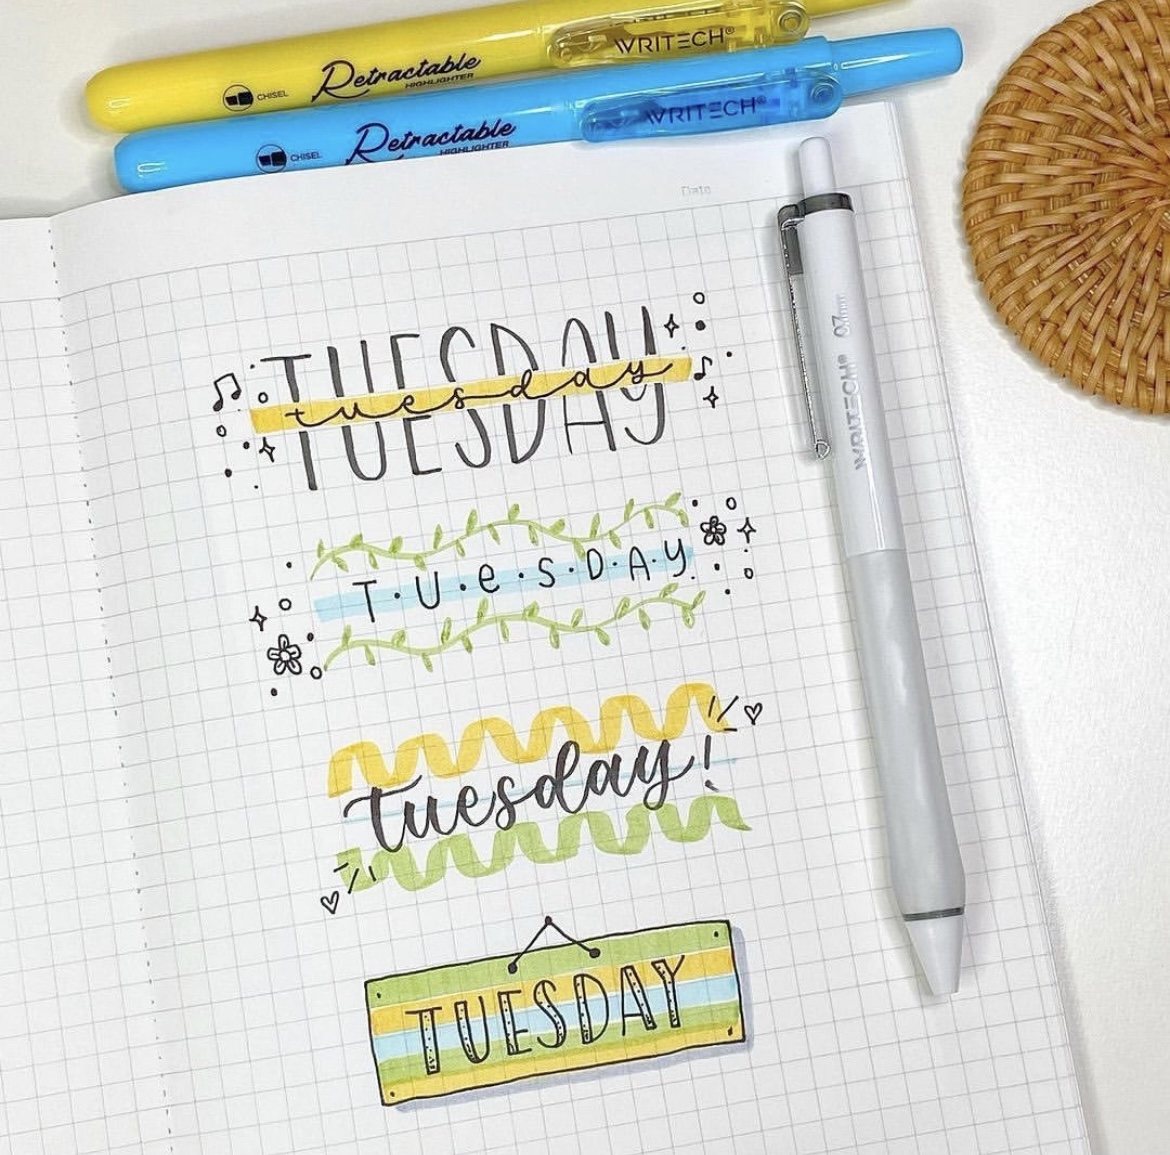 WRITECH®
Retractable
HIGHLIGHTER
CHISEL
WRITECH®
Retractable
HIGHLIGHTER
CHISEL
Date
WRITECH® 0.7mm
TUESDAY
tuesday
T·U·e·s·D·A·y.
tuesday!
TUESDAY